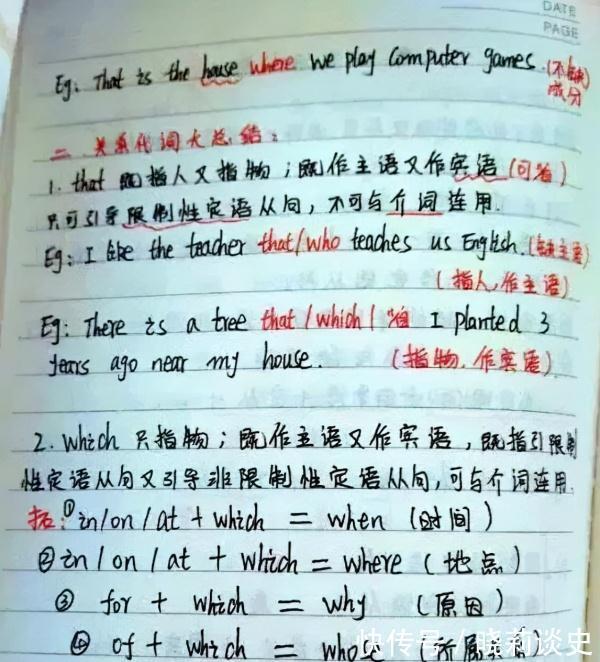 DATE
PAGE
Eg: That is the house where we play computer games. (不缺
成分)
二、关系代词大总结:
1. that 既指人又指物;既作主语又作宾语(可省)
只可引导限制性定语从句,不可与介词连用.
Eg: I like the teacher that/who teaches us English. (缺主语)
(指人,作主语)
Eg: There is a tree that / which / 省 I planted 3
years ago near my house. (指物,作宾语)
2. which 只指物;既作主语又作宾语,既指引限制
性定语从句又引导非限制性定语从句,可与介词连用.
拓:①in/on/at + which = when (时间)
②in/on/at + which = where (地点)
③ for + which = why (原因)
④ of + which = whose (所属关
快传号/晓莉谈史